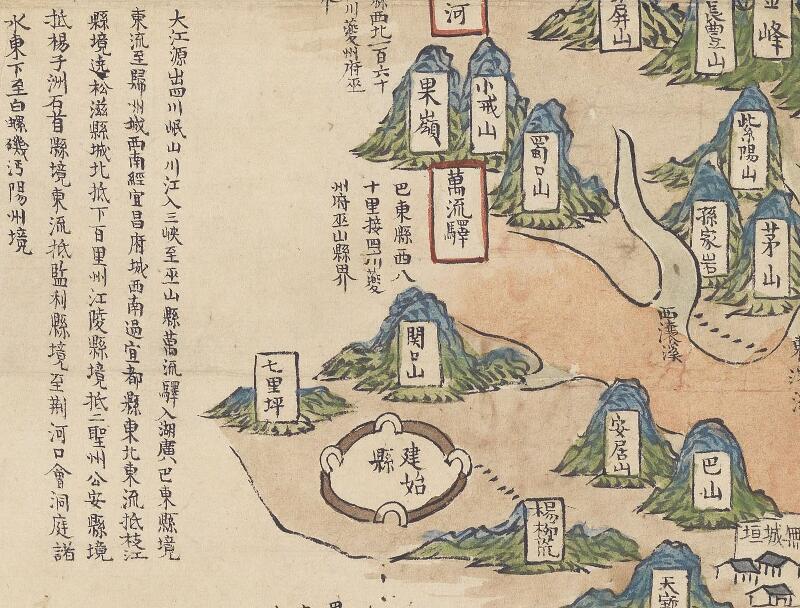 大江源出四川岷山川江入三峽至巫山縣萬流驛入湖廣巴東縣境
東流至歸州城西南經宜昌府城西南過宜都縣東北東流抵枝江
縣境遶松滋縣城北抵下百里州江陵縣境抵二聖州公安縣境
抵楊子洲石首縣境東流抵監利縣境至荆河口會洞庭諸
水東下至白螺磯沔陽州境
縣西北一百六十
川夔州府巫
河
屏山
豐山
峰
果嶺
小戒山
蜀口山
萬流驛
巴東縣西八
十里接四川夔
州府巫山縣界
紫陽山
孫家岩
茅山
西瀼溪
関口山
七里坪
建始
縣
安居山
巴山
楊柳荒
無城垣
天